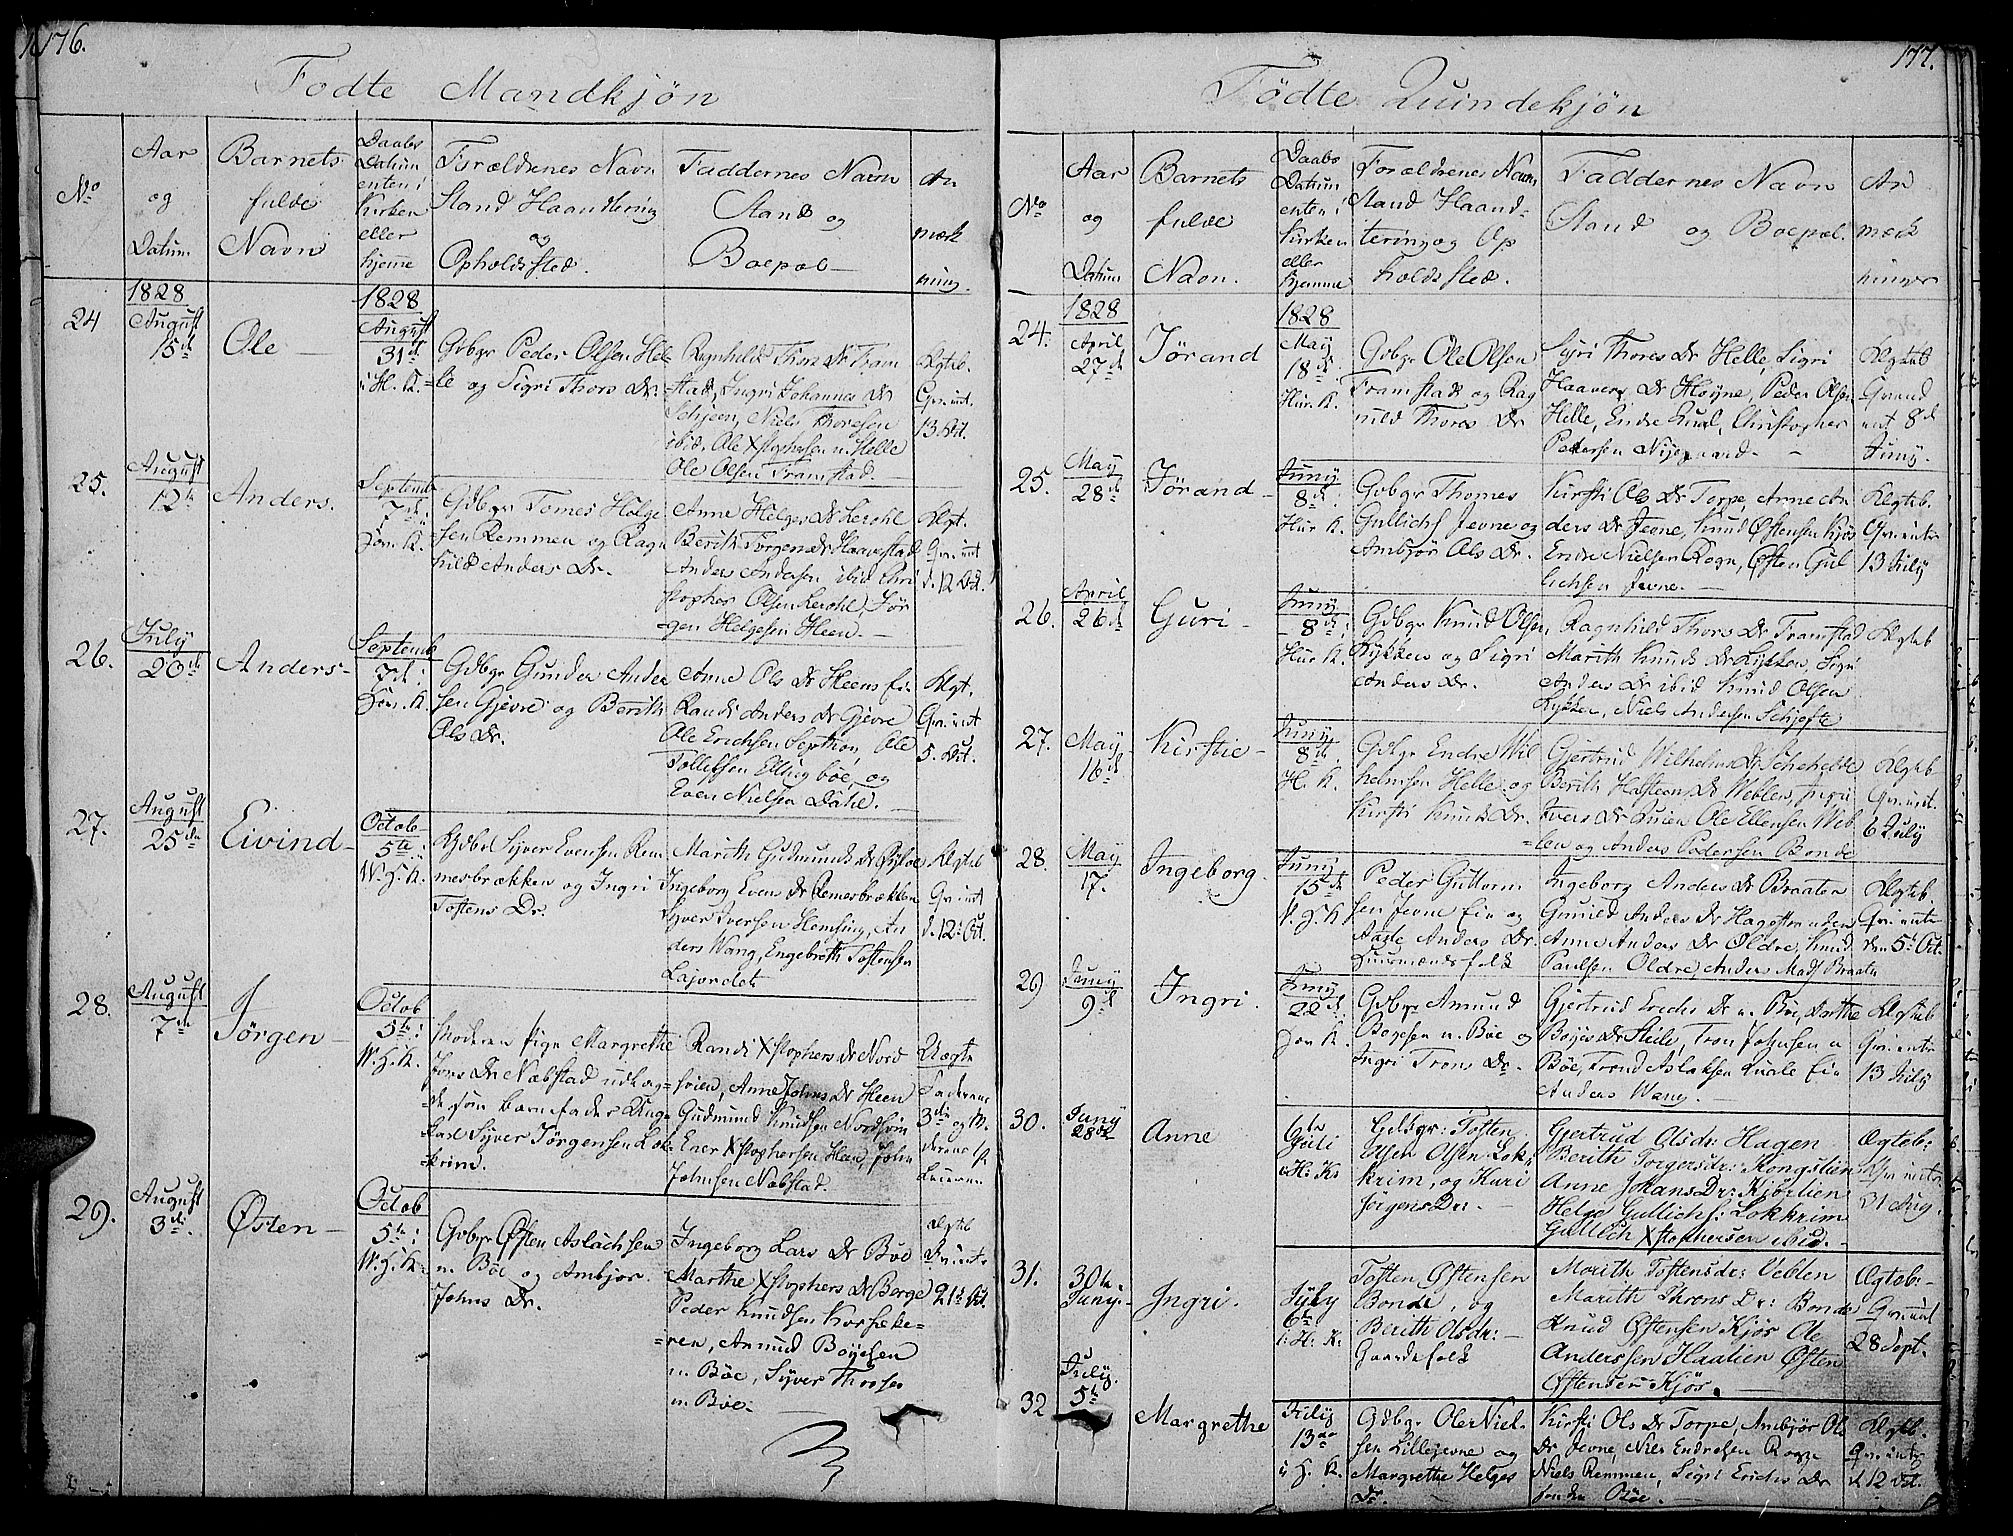 176.
Fødte Mandkjøn
No
Aar
og
Datum
Barnets
fulde
Navn
Daabs
Datum
enten i
Kirken
eller
hjeme
Forældrenes Navn
Stand Haandtering
og
Opholdssted.
Faddernes Navn
Stand og
Boepæl
An
mærk
ning.
24
1828
August
15de
Ole
1828
August
31de
i H. K.
Gbgr Peder Olsen Hel=
le og Sigri Thors Dr.
Ragnhild Thors Dr Fram
stad, Ingri Johannes Dr
Schjeen, Niels Thoresen
ibid. Ole Xstophersen n. Helle
Ole Olsen Framstad.
Ægteb.
Gr. int.
13 Oct.
25.
August
12te
Anders.
Septemb
7de
Gdbgr Tomes Helge
sen Remmen og Ragn
hild Anders Dr.
Anne Helges Dr Kerohl
Berith Torgers Dr Haavestad
Anders Andersen ibid Chri
stopher Olsen Kerohl, Jør
gen Helgesen Heen.
Ægt.
Gr. int
d. 12 Oct.
26.
July
20de
Anders
Septemb
7de
Gdbgr Gunder Ander
sen Gjevre og Berith
Ols Dr.
Anne Ols Dr Heens Ei.
Randi Anders Dr Gjevre
Ole Erichsen, Ole
Tollefsen Ellingbøe, og
Even Nielsen Dahl.
Ægt.
Gr. int
5. Oct.
27.
August
25de
Eivind
Octob
5te
W. S. K.
Gdbd Syver Evensen Rem
mesbrækken og Ingri
Tostens Dr.
Marith Gudmunds Dr
Ingeborg Evens Dr Remesbrækken
Syver Iversen Hemsing, An
ders Wang, Engebreth Tostensen
Lajordet
Ægteb
Gr. int
d. 12 Oct.
28.
August
7de
Jørgen
Octob
5te
W. S. K.
Moderen Pige Margrethe
Jons Dr Næbstad udlag=
de som barnefader Unge
karl Syver Jørgensen Lok=
krim.
Randi Xstophers Dr Nord
svien, Anne Johns Dr Heen
Gudmund Knudsen Nordsvien
Ener Xstophersen Heen, John
Johnsen Næbstad.
Uægte
Faderens
3de og M.
derens 1st
Leierm
29.
August
3de
Østen
Octob
5te
W. S. K.
Gbgr Østen Aslachsen
n. Bøe og Ambjør
Johns Dr.
Ingeborg Lars Dr Bøe
Marthe Xstophers Dr Berge
Peder Knudsen Korsæke=
ren, Amund Boyesen
n. Bøe, Syver Throsen
n. Bøe.
Ægteb
Gr. int
21de Oct.
177.
Fødte Quindekjøn
No
Aar
og
Datum
Barnets
fulde
Navn.
Daabs
Datum
enten i
Kirken
eller
hjemme
Forældrenes Navn
Stand Haand=
tering og Op
holdssted.
Faddernes Navn
Stand og Boepæl.
An
mærk
ninger
24.
1828
April
27de
Jørand
1828
May
18de
Hur. K.
Gbgr Ole Olsen
Framstad og Rag
nild Thores Dr
Sigri Thores Dr Helle, Sigri
Haavers Dr Høyne, Peder Olsen
Helle, Endre Qual, Christopher
Pedersen Nijegaard.
Ægteb
Gr und
int 8de
Juny.
25.
May
28de
Jørand
Juny
8de
Hur K.
Gbgr Thomes
Gullichs Jevne og
Ambjør Ols Dr.
Kirsti Ols Dr Torpe, Anne An
ders Dr Jevne, Knud Østensen Kjøs
Endre Nielsen Rogn, Østen Gul
lichsen Jevne.
Ægteb
Gr. int
13 July
26.
April
26de
Guri
Juny
8de
Hur K.
Gdbgr Knud Olsen
Lykken og Sigri
Anders Dr.
Ragnhild Thors Dr Framstad
Marith Knuds Dr Lykken, Sigri
Anders Dr ibid Knud Olsen
Lykken, Niels Andersen Schjefte
Ægteb
27.
May
16de
Kirstie
Juny
8de
H. K.
Gdbgr Endre Wil
helmsen Helle og
Kirsti Knuds Dr.
Gjertrud Wilhelms Dr
Berith Halsteens Dr Weblen, Ingri
Ivers Dr Quien Ole Ellensen Web=
len og Anders Pedersen Bonde
Ægteb
Gr. int.
6 July
28.
May
17.
Ingeborg.
Juny
15de
V. S. K.
Peder Guttorm
sen Jevne Eie og
Aagte Anders Dr.
Huusmandsfolk
Ingeborg Anders Dr Braaten
Gunild Anders Dr Hagestranden
Anne Anders Dr Oldre, Knud
Paulsen Oldre, Anders Mads Braaten
Ægteb.
Gr. int
den 5te Oct.
29
Juny
9de
Ingri.
Juny
22de
Gdbgr Amund
Boyesen n. Bøe og
Ingri Trons Dr.
Gjertrud Erichs Dr n. Bøe, Dorthe
Boyes Dr Hilde, Tron Johnsen n
Bøe, Trond Aslaksen Quale Eie
Anders Wang.
Ægteb
Gr. int
13 July
30.
Juny
28de
Anne
6te
Juli
i H: K:
Gdbgr: Tosten
Olsen Lok=
krim, og Kari
JørgensDr:
Gjertrud Olsdr: Hagen
Berith Torgersdr: Kongslien
Anne JohansDr: Kjørlien
Helge Gullichs: Lokkrim
Gullich Xstophersen ibid.
Ægteb:
Gr. int
31 Aug.
31.
30te
Juny.
Ingri.
July
6te
i: H: K:
Tosten Østensen
Bonde, og
Berith Olsdr:
Gaardsfolk
Marith Tostensdr: Veblen
Marith Throns Dr: Bonde
Knud Østensen Kjøs Ole
Anderssen Haalien Østen
Østensen Kjøs.
Ægteb:
Gr int
28 Sept.
32
July
5te
Margrethe
July
13de
i H. K.
Gdbgr Ole Niel=
sen Lillejevne og
Margrethe Helges
Dr.
Kirsti Ols Dr Torpe, Ambjør Ols
Dr Jevne, Niels Endresen Rogne
Niels Remmen, Sigri Erichs Dr
Søndre Bøe.
Ægteb.
Gr. int
d 12 Oct.